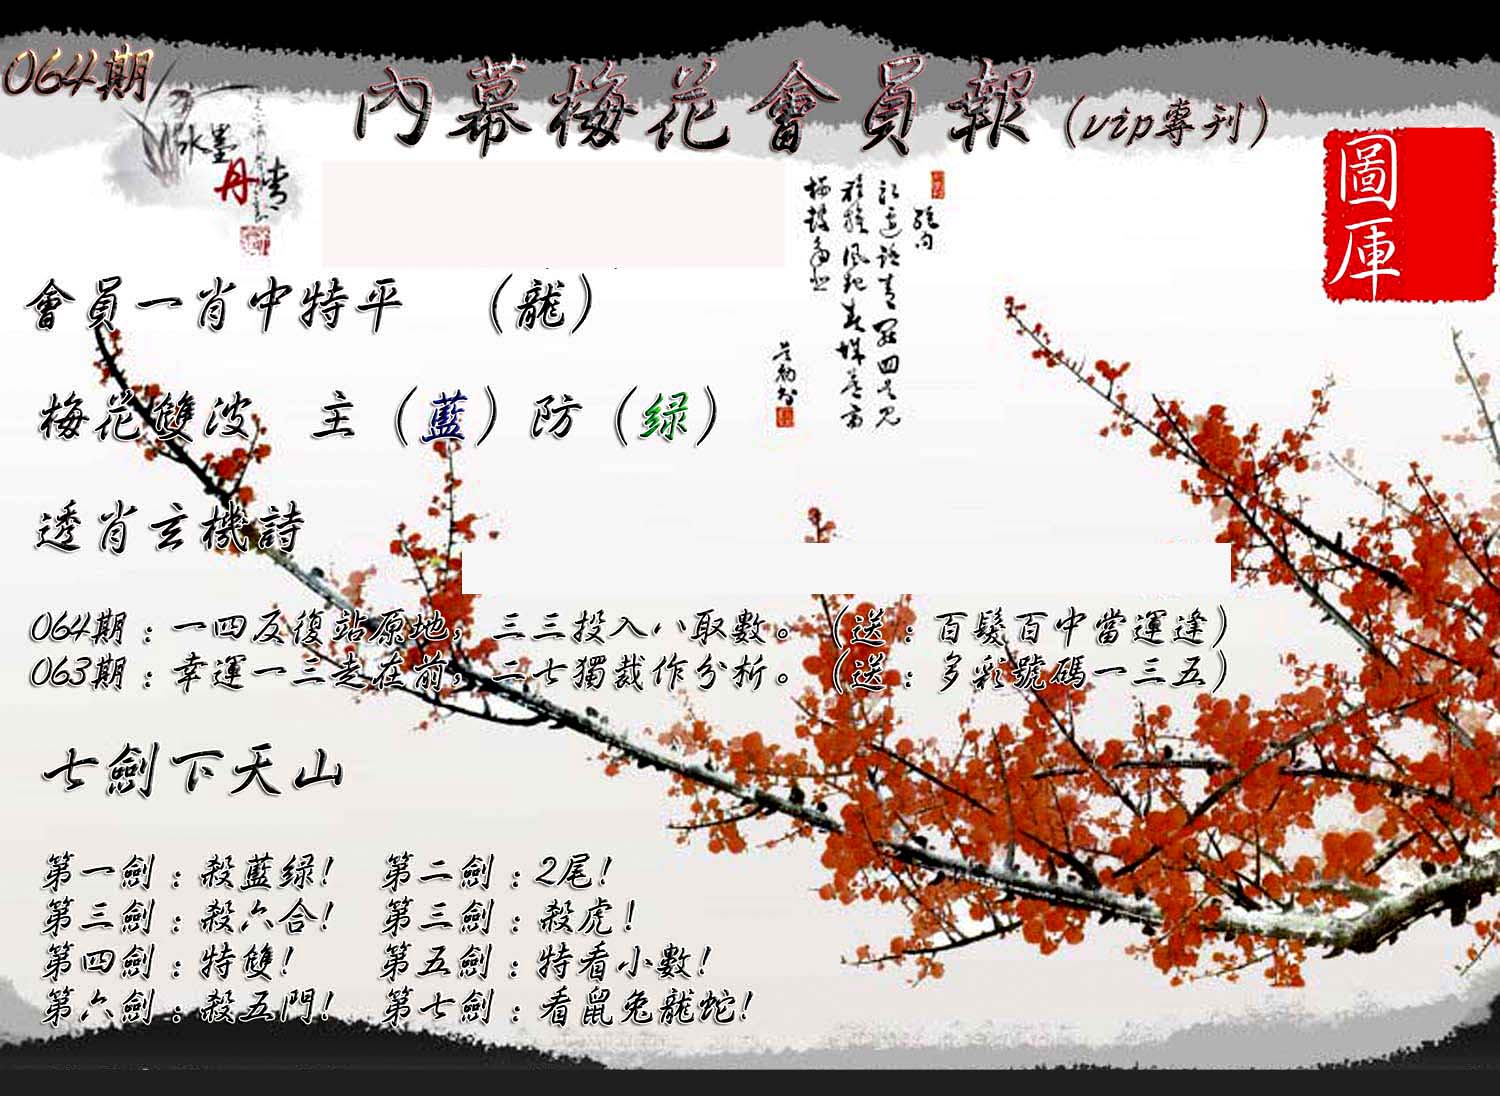 064期
內幕梅花會員報(vip專刊)
水墨
丹青
圖庫
會員一肖中特平 (龍)
梅花雙波 主(藍)防(绿)
透肖玄機詩
064期:一四反復站原地,三三投入八取數。(送:百髮百中當運逢)
063期:幸運一三走在前,二七獨裁作分析。(送:多彩號碼一三五)
七劍下天山
第一劍:殺藍绿! 第二劍:2尾!
第三劍:殺六合! 第三劍:殺虎!
第四劍:特雙! 第五劍:特看小數!
第六劍:殺五門! 第七劍:看鼠兔龍蛇!